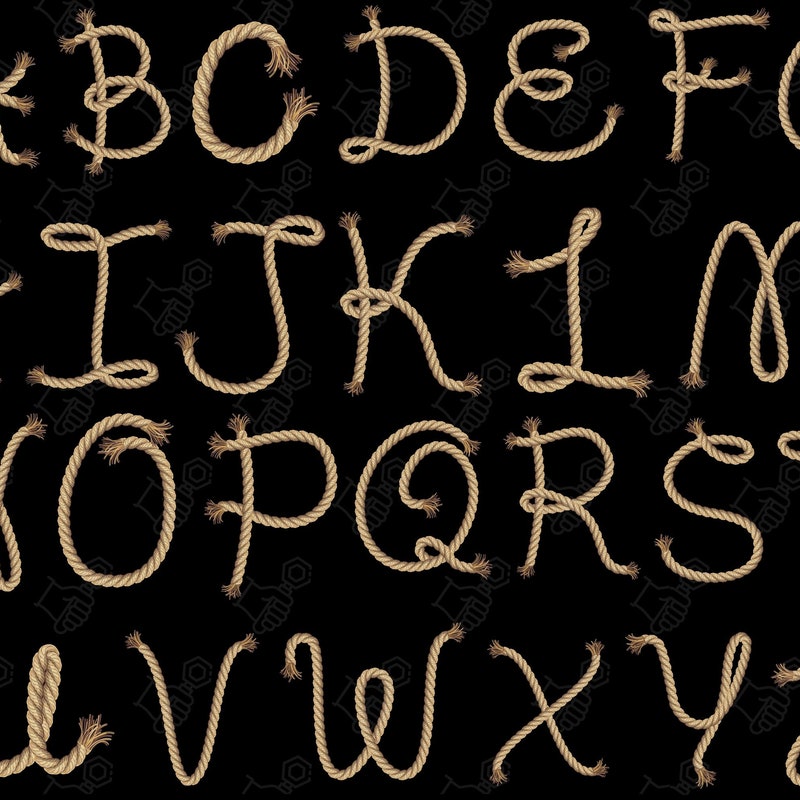 B C D E F
I J K L M
N O P Q R S T
V W X Y